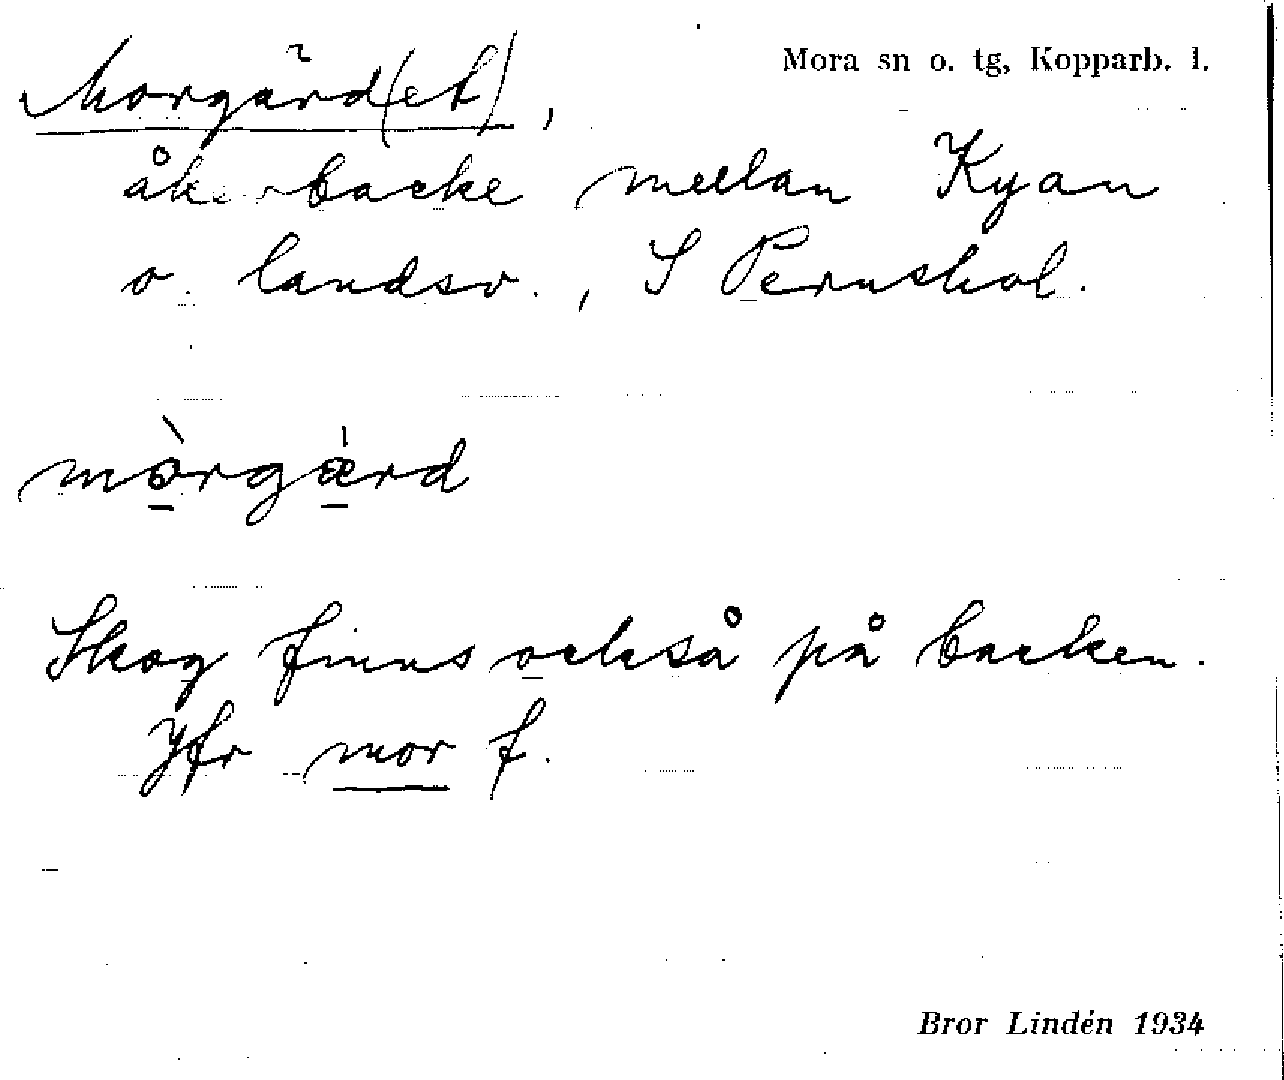 Mora sn o. tg, Kopparb. l.
Morgärd(et),
åkerbacke mellan Kyan
o. landsv., S Pernshol.
mòrgärd
Skog finns också på backen.
Jfr mor f.
Bror Lindén 1934